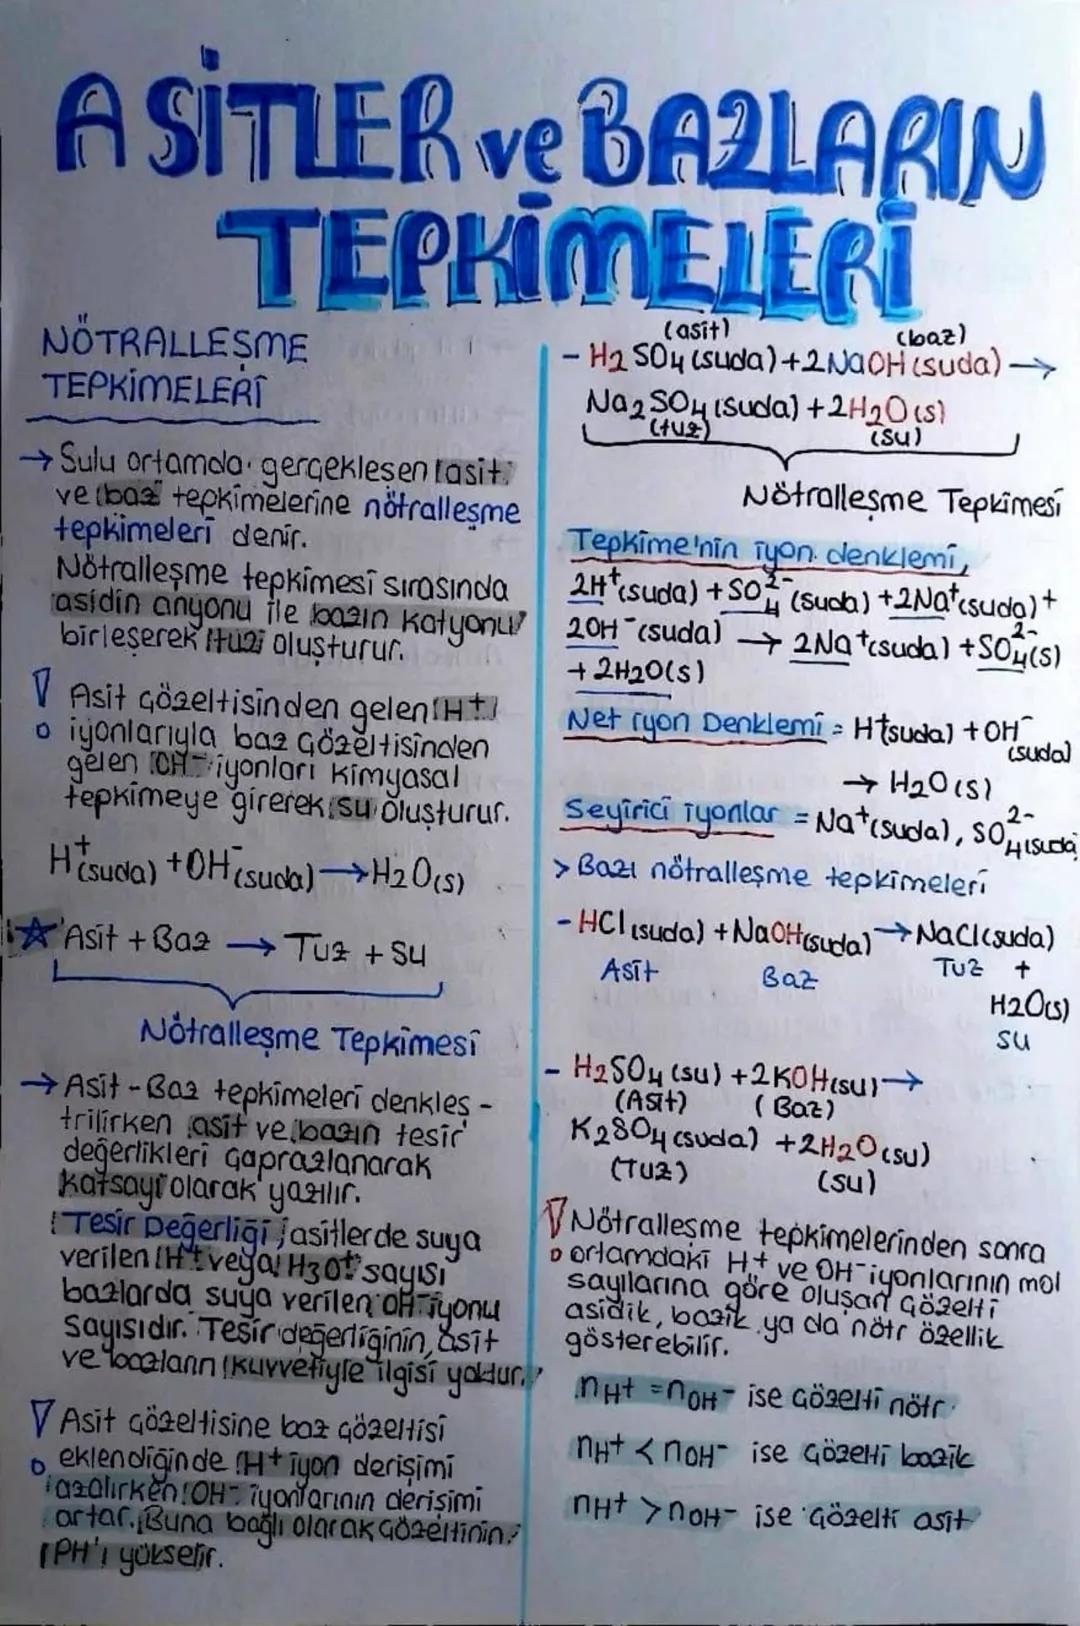 ASİTLER ve BAZLARIN
TEPKİMELERİ
NÖTRALLEŞME
TEPKİMELERİ
→ Sulu ortamda gerçekleşen asit
ve baz tepkimelerine nötralleşme
tepkimeleri denir.
Nötralleşme tepkimesi sırasında
asidin anyonu ile bazın katyonu
birleşerek tuzi oluşturur.
Asit çözeltisinden gelen H⁺
iyonlarıyla baz çözeltisinden
gelen OH⁻ iyonları kimyasal
tepkimeye girerek su oluşturur.
H⁺(suda) + OH⁻(suda) → H2O(s)
☆ Asit + Baz → Tuz + Su
Nötralleşme Tepkimesi
→ Asit - Baz tepkimeleri denkleş -
trilirken asit ve bazın tesir
değerlikleri çaprazlanarak
katsayı olarak yazılır.
Tesir Değerliği ; asitlerde suya
verilen H⁺ veya H3O⁺ sayısı
bazlarda suya verilen OH⁻ iyonu
sayısıdır. Tesir değerliğinin, asit
ve bazların kuvvetiyle ilgisi yoktur.
Asit çözeltisine baz çözeltisi
eklendiğinde H⁺ iyon derişimi
azalırken OH⁻ iyonlarının derişimi
artar. Buna bağlı olarak çözeltinin
PH'ı yükselir.
(asit) (baz)
- H2SO4(suda) + 2NaOH(suda) →
Na2SO4(suda) + 2H2O(s)
(tuz) (su)
Nötralleşme Tepkimesi
Tepkime'nin iyon denklemi,
2H⁺(suda) + SO4²⁻(suda) + 2Na⁺(suda) +
2OH⁻(suda) → 2Na⁺(suda) + SO4²⁻(s)
+ 2H2O(s)
Net iyon Denklemi = H⁺(suda) + OH⁻
(suda)
→ H2O(s)
Seyirici iyonlar = Na⁺(suda), SO4²⁻(suda)
> Bazı nötralleşme tepkimeleri
- HCl(suda) + NaOH(suda) → NaCl(suda)
Asit Baz Tuz +
H2O(s)
su
- H2SO4(su) + 2KOH(su) →
(Asit) (Baz)
K2SO4(suda) + 2H2O(su)
(Tuz) (su)
Nötralleşme tepkimelerinden sonra
ortamdaki H⁺ ve OH⁻ iyonlarının mol
sayılarına göre oluşan çözelti
asidik, bazik ya da nötr özellik
gösterebilir.
nH⁺ = nOH⁻ ise çözelti nötr
nH⁺ < nOH⁻ ise çözelti bazik
nH⁺ > nOH⁻ ise çözelti asit